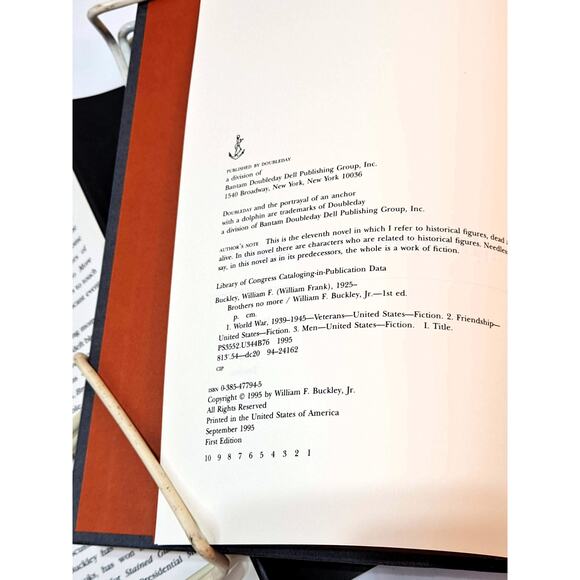 PUBLISHED BY DOUBLEDAY
a division of
Bantam Doubleday Dell Publishing Group, Inc.
1540 Broadway, New York, New York 10036
DOUBLEDAY and the portrayal of an anchor
with a dolphin are trademarks of Doubleday
a division of Bantam Doubleday Dell Publishing Group, Inc.
AUTHOR'S NOTE This is the eleventh novel in which I refer to historical figures, dead
alive. In this novel there are characters who are related to historical figures. Needles
say, in this novel as in its predecessors, the whole is a work of fiction.
Library of Congress Cataloging-in-Publication Data
Buckley, William F. (William Frank), 1925–
Brothers no more / William F. Buckley, Jr.—1st ed.
p. cm.
1. World War, 1939–1945—Veterans—United States—Fiction. 2. Friendship—
United States—Fiction. 3. Men—United States—Fiction. I. Title.
PS3552.U344B76 1995
813'.54—dc20 94-24162
CIP
ISBN 0-385-47794-5
Copyright © 1995 by William F. Buckley, Jr.
All Rights Reserved
Printed in the United States of America
September 1995
First Edition
10 9 8 7 6 5 4 3 2 1
More
to touch
because every
more
has won
for Stained Glass
Presidential